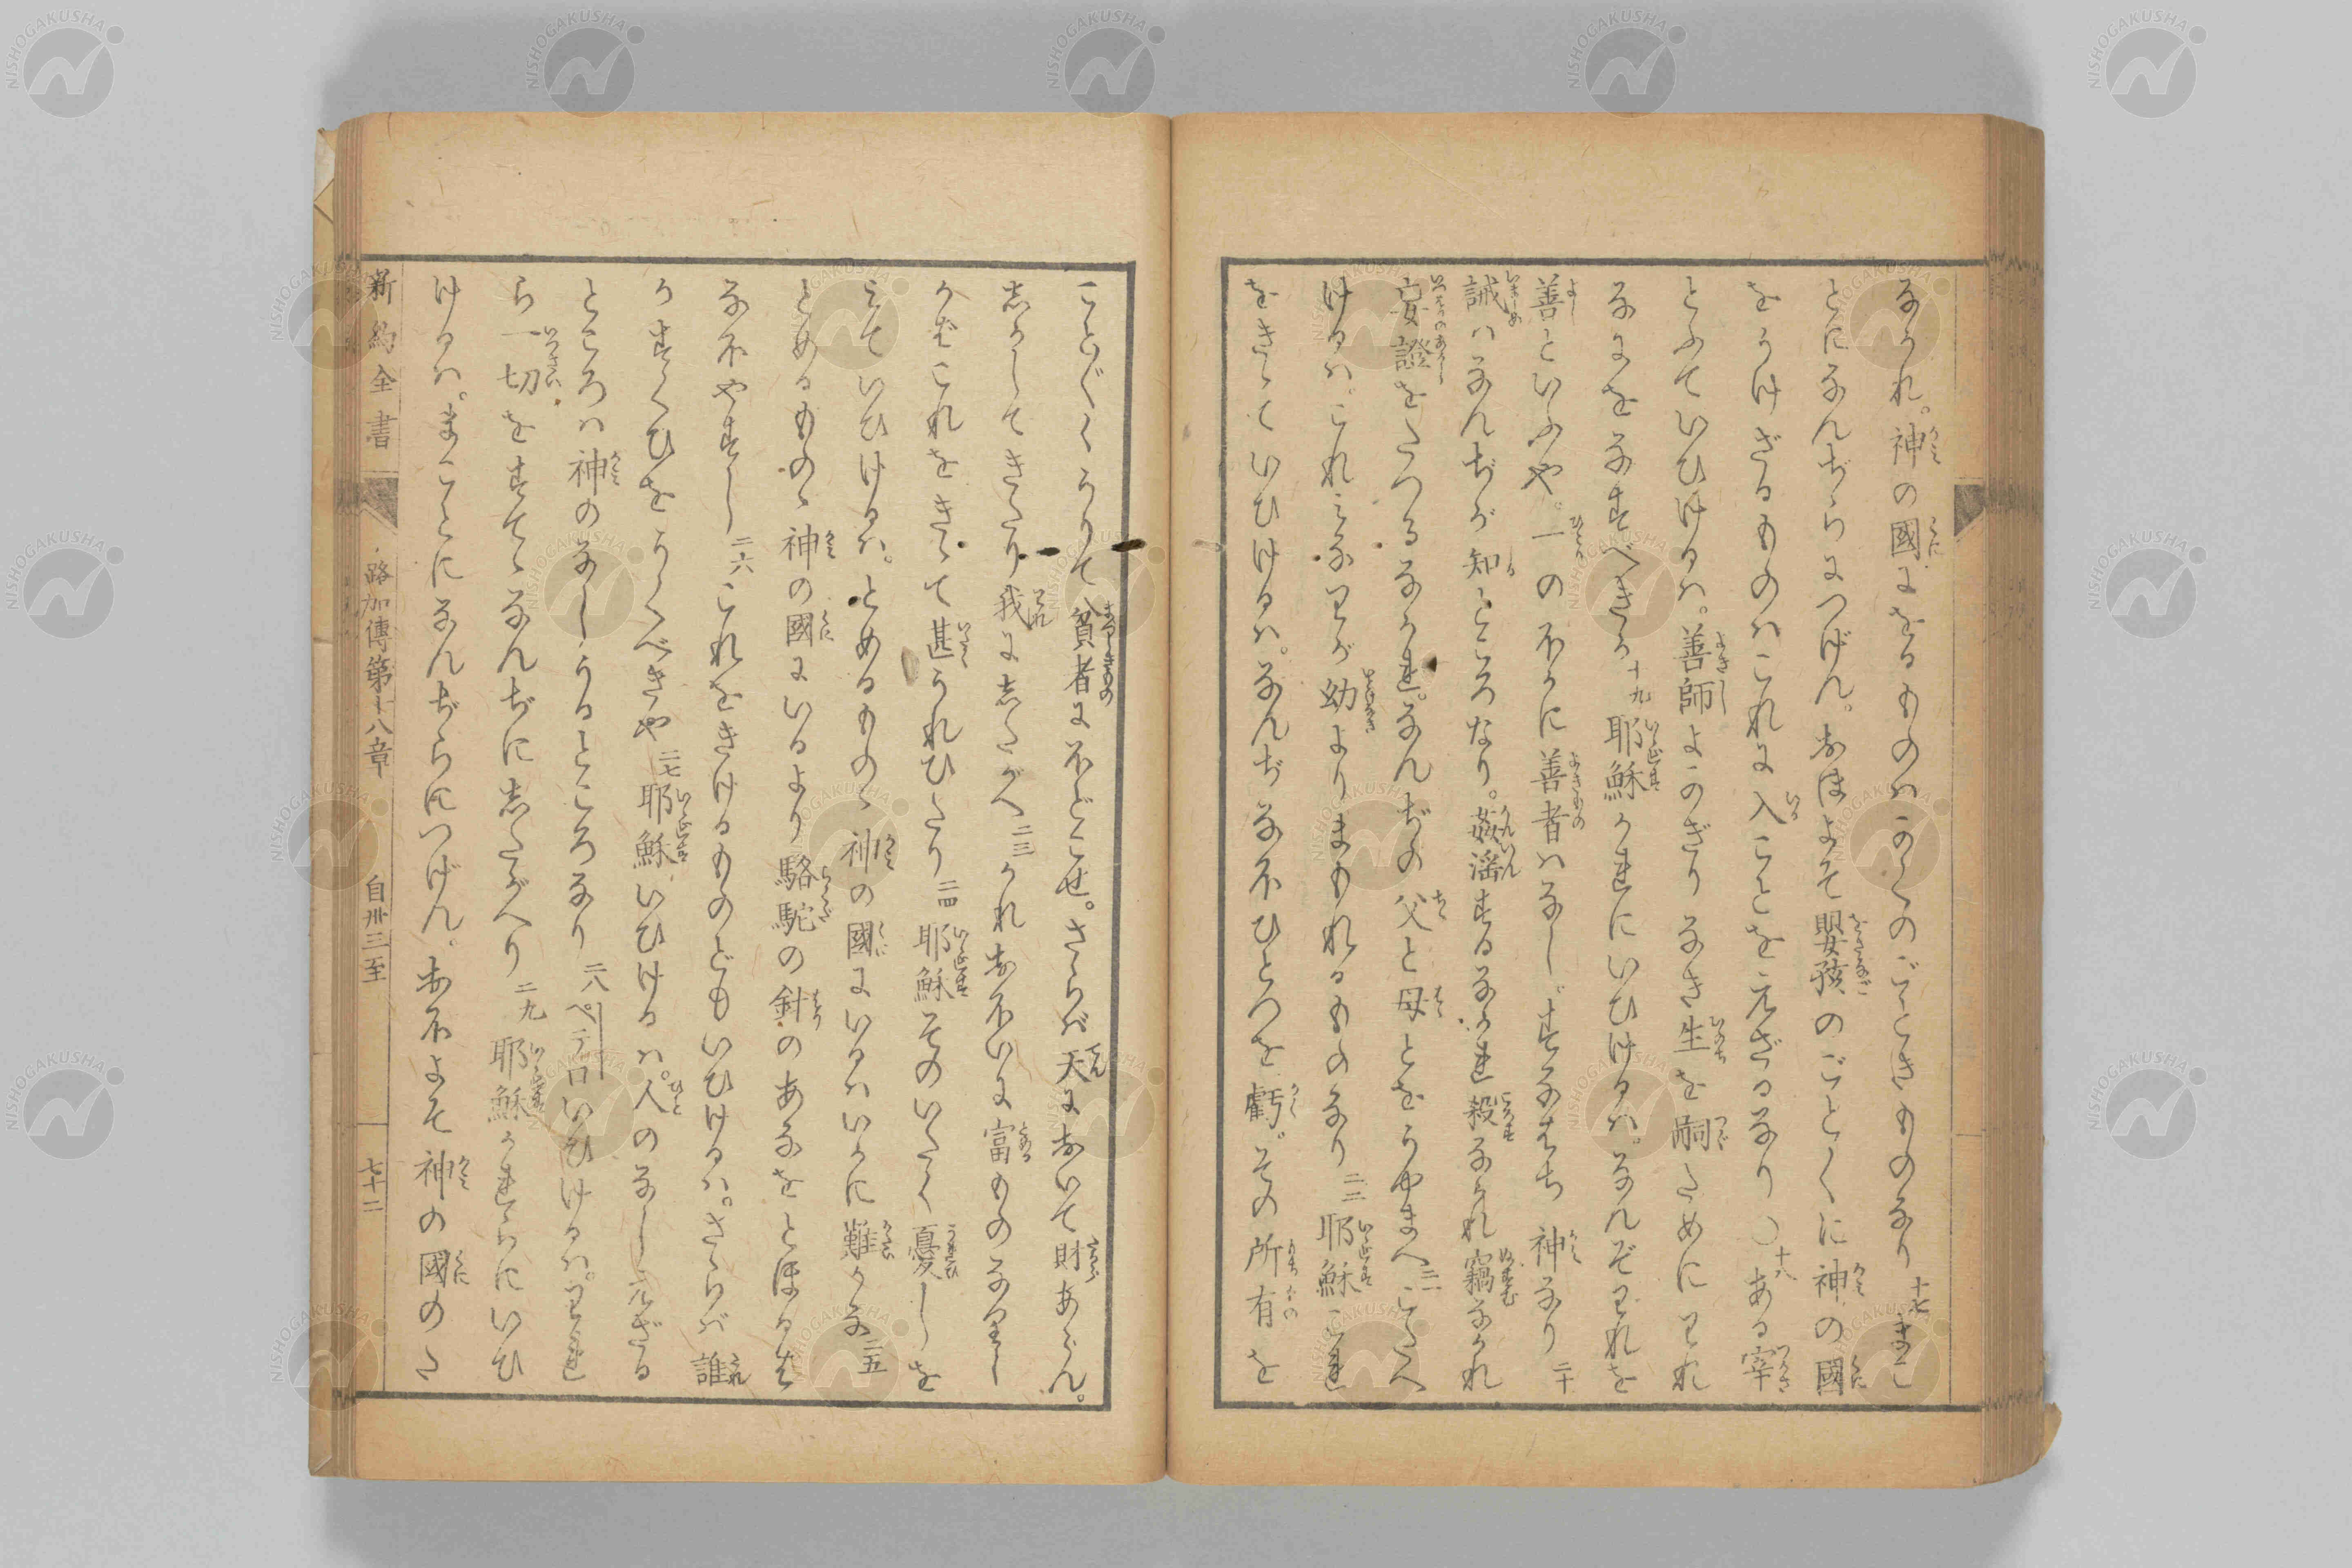 なかれ。神の國にをるものハかくのごときものなり 十七 まこ
とになんぢらにつげん。おほよそ嬰孩のごとくに神の國
をうけざるものハこれに入ことをえざるなり 〇十八 ある宰
とふていひけるハ。善師よかぎりなき生を嗣ためにわれ
なにをなすべきか 十九 耶穌かれにいひけるハ。なんぞわれを
善といふや。一の不かに善者ハなし。すなはち神なり 二十
誡ハなんぢが知ところなり。姦淫するなかれ殺なかれ竊なかれ
妄證をたつるなかれ。なんぢの父と母とをうやまへ 二一 こたへ
けるハ。これみなわが幼よりまもれるものなり 二二 耶穌これ
をきゝていひけるハ。なんぢな不ひとつを虧。その所有を
ことごとくうりて貧者に不どこせ。さらバ天において財あらん。
志かしてきたり我に志たがへ 二三 かれおほいに富ものなりし
かバこれをきゝて甚うれひたり 二四 耶穌そのいたく憂しを
みていひけるハ。とめるものゝ神の國にいるハいかに難かな 二五
とめるものゝ神の國にいるより駱駝の針のあなをとほるは
な不やすし 二六 これをきけるものどもいひけるハ。さらバ誰
かすくひをうくべきや 二七 耶穌いひけるハ。人のなしえざる
ところハ神のなしうるところなり 二八 ペテロいひけるハ。われ
ら一切をすてゝなんぢに志たがへり 二九 耶穌かれらにいひ
けるハ。まことになんぢらにつげん。お不よそ神の國のた
新約全書 路加傳第十八章 自卅三至 七十二